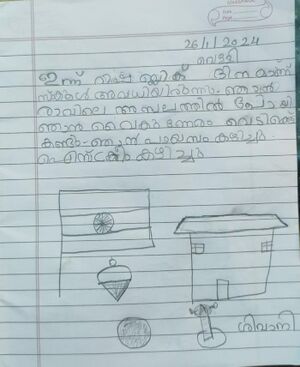 26/1/2024
വെള്ളി
ഇന്ന് റിപ്പബ്ലിക് ദിനമാണ്
സ്കൂൾ അവധിയായിരുന്നു. ഞാൻ
രാവിലെ അമ്പലത്തിൽ പോയി
ഞാൻ വൈകുന്നേരം
കണ്ടു. ഞാൻ പായസം കഴിച്ചു.
കഴിച്ചു
ശിവാനി